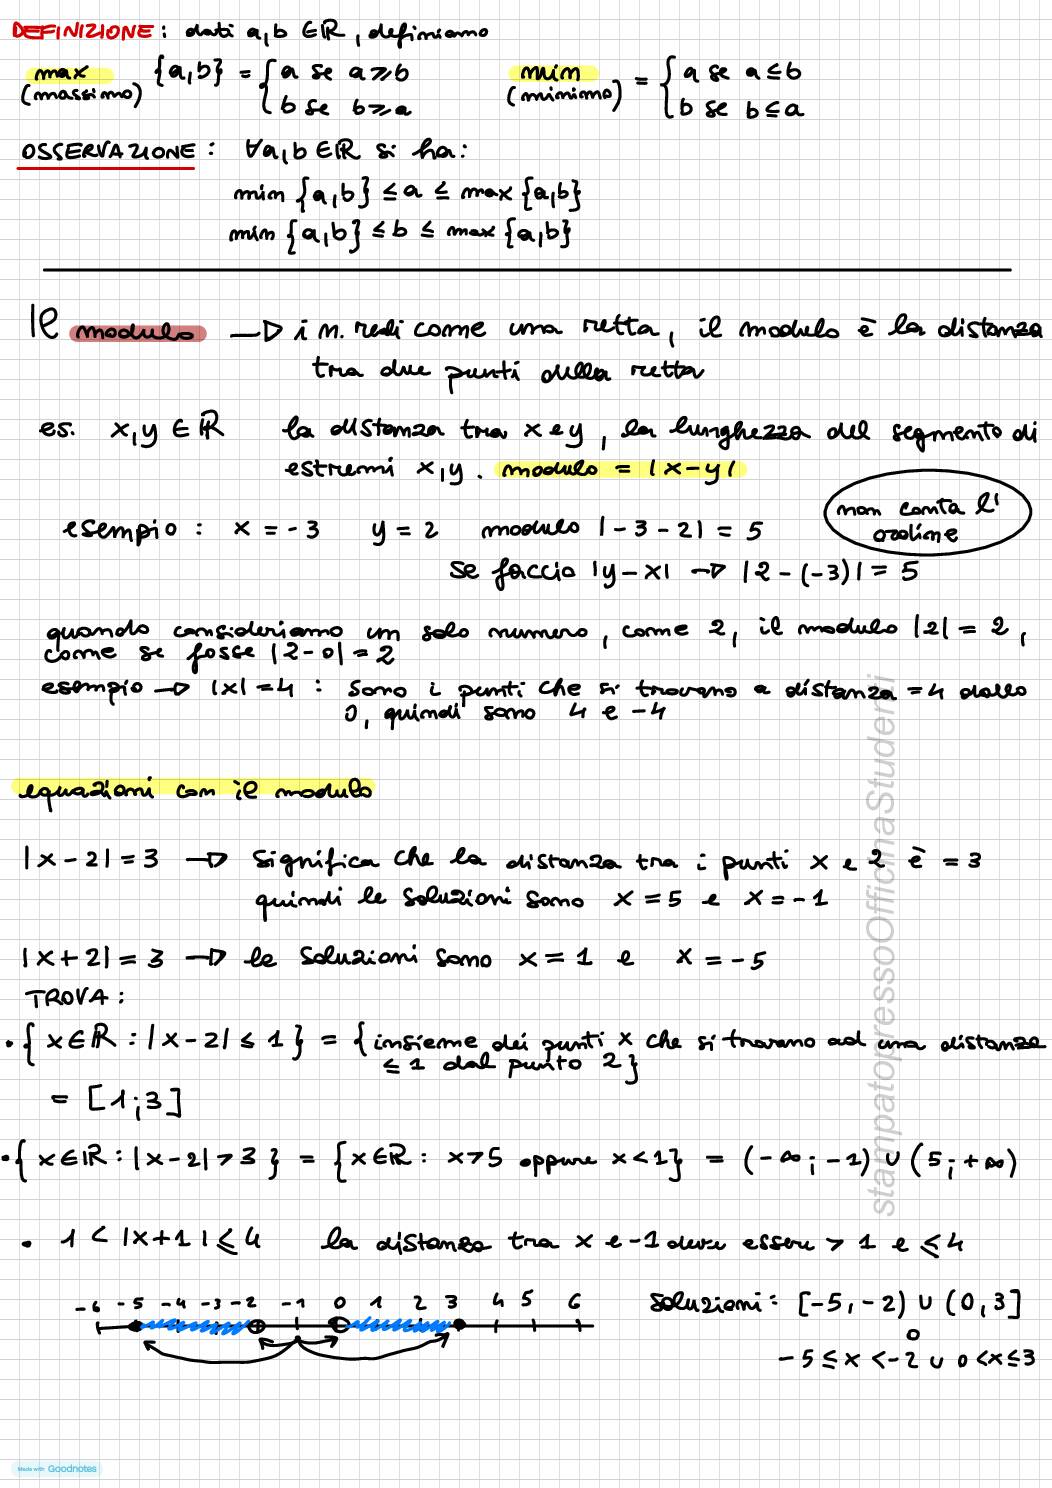 DEFINIZIONE : dati a,b ∈ ℝ, definiamo
max {a,b} = { a se a ≥ b      min = { a se a ≤ b
(massimo)      b se b ≥ a      (minimo)      b se b ≤ a
OSSERVAZIONE : ∀a,b ∈ ℝ si ha:
min {a,b} ≤ a ≤ max {a,b}
min {a,b} ≤ b ≤ max {a,b}
Il modulo → i n. reali come una retta, il modulo è la distanza
tra due punti della retta
es. x,y ∈ ℝ la distanza tra x e y, la lunghezza del segmento di
estremi x,y. modulo = |x-y|
non conta l'
ordine
esempio : x = -3 y = 2 modulo |-3-2| = 5
se faccio |y-x| → |2-(-3)| = 5
quando consideriamo un solo numero, come 2, il modulo |2| = 2,
come se fosse |2-0| = 2
esempio → |x| = 4 : sono i punti che si trovano a distanza = 4 dallo
0, quindi sono 4 e -4
equazioni con il modulo
|x-2| = 3 → significa che la distanza tra i punti x e 2 è = 3
quindi le soluzioni sono x = 5 e x = -1
|x+2| = 3 → le soluzioni sono x = 1 e x = -5
TROVA :
• { x ∈ ℝ : |x-2| ≤ 1 } = { insieme dei punti x che si trovano ad una distanza
≤ 1 dal punto 2 }
= [1;3]
• { x ∈ ℝ : |x-2| > 3 } = { x ∈ ℝ : x > 5 oppure x < 1 } = (-∞ ; -1) ∪ (5 ; +∞)
• 1 < |x+1| ≤ 4 la distanza tra x e -1 deve essere > 1 e ≤ 4
-6 -5 -4 -3 -2 -1 0 1 2 3 4 5 6
soluzioni : [-5,-2) ∪ (0,3]
o
-5 ≤ x < -2 ∪ 0 < x ≤ 3
stampatopressoOfficinaStudenti
Made with Goodnotes